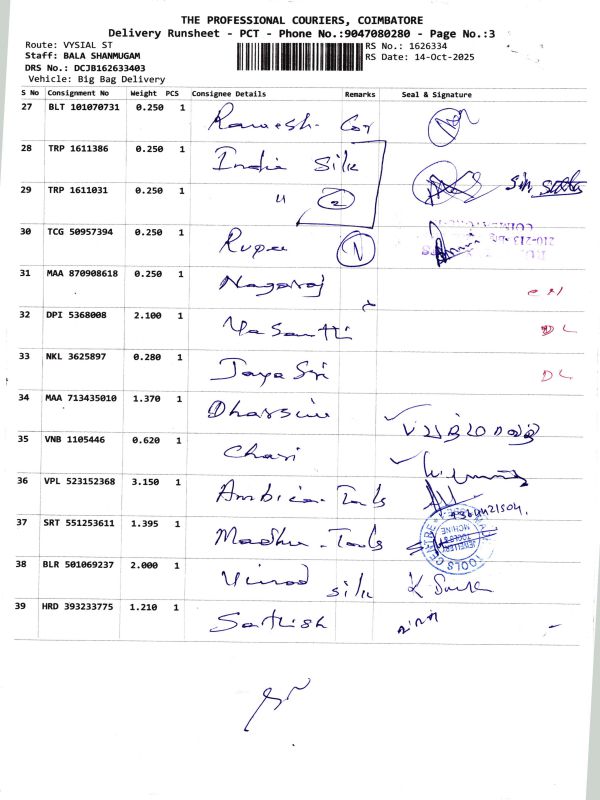 THE PROFESSIONAL COURIERS, COIMBATORE
Delivery Runsheet - PCT - Phone No.:9047080280 - Page No.:3
Route: VYSIAL ST RS No.: 1626334
Staff: BALA SHANMUGAM RS Date: 14-Oct-2025
DRS No.: DCJB162633403
Vehicle: Big Bag Delivery
S No Consignment No Weight PCS Consignee Details Remarks Seal & Signature
27 BLT 101070731 0.250 1 Ramesh
28 TRP 1611386 0.250 1 India Silk
29 TRP 1611031 0.250 1 " 2
30 TCG 50957394 0.250 1 Rupa
31 MAA 870908618 0.250 1 Nagaraj
32 DPI 5368008 2.100 1 Vasanthi DL
33 NKL 3625897 0.280 1 Jaya Sri DL
34 MAA 713435010 1.370 1 Dharsini
35 VNB 1105446 0.620 1 Chari
36 VPL 523152368 3.150 1 Ambica Tools
37 SRT 551253611 1.395 1 Madhu - Tools
38 BLR 501069237 2.000 1 Vinod silk
39 HRD 393233775 1.210 1 Sathish